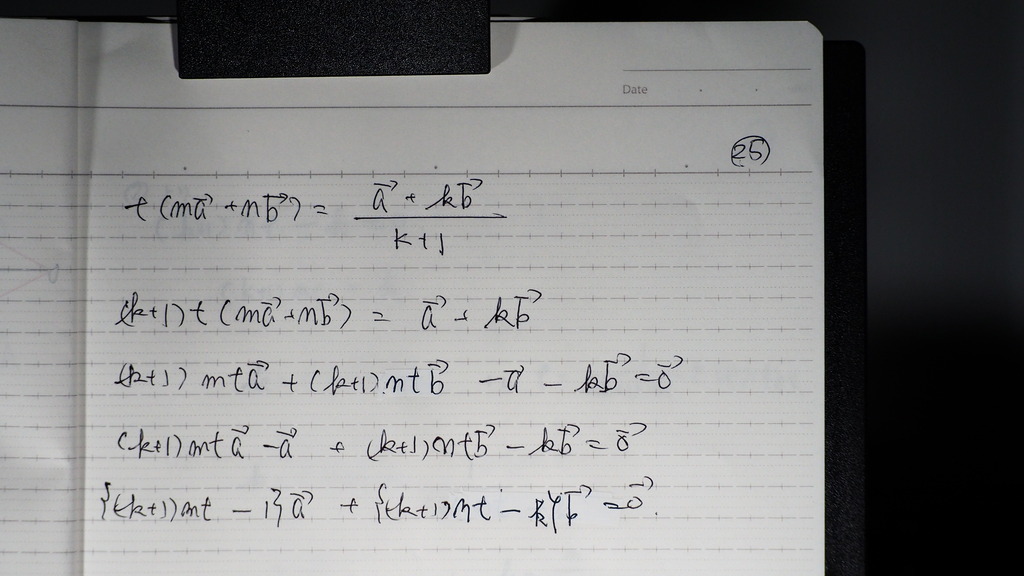 Date
25
t(ma⃗ + nb⃗) = (a⃗ + kb⃗)/(k+1)
(k+1)t(ma⃗+nb⃗) = a⃗ + kb⃗
(k+1)mta⃗ + (k+1)ntb⃗ - a⃗ - kb⃗ = 0⃗
(k+1)mta⃗ - a⃗ + (k+1)ntb⃗ - kb⃗ = 0⃗
{(k+1)mt - 1}a⃗ + {(k+1)nt - k}b⃗ = 0⃗.